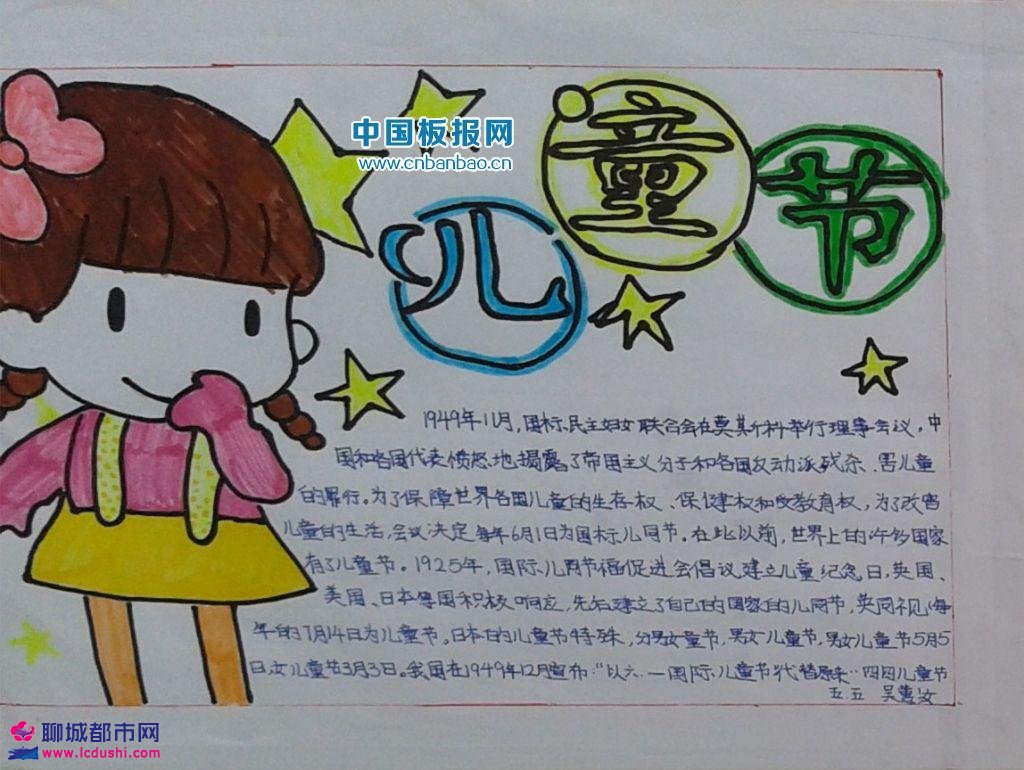 中国板报网
www.cnbanbao.cn
儿童节
1949年11月,国标民主妇女联合会在莫其斤科举行理事会议,中
国和各国代表愤怒地揭露了帝国主义分子和各国反动派残杀、害儿童
的罪行。为了保障世界各国儿童的生存权、保健权和受教育权,为了改害
儿童的生活,会议决定每年6月1日为国标儿同节。在此以前,世界上的许多国家
有了儿童节。1925年,国际儿同节福促进会倡议建立儿童纪念日,英国、
美国、日本等国积极响应,先后建立了自己的国家的儿同节,英同视每
年的7月14日为儿童节。日本的儿童节特殊,分男女童节,男女儿童节,男女儿童节5月5
日,女儿童节3月3日。我国在1949年12月宣布:“以六.一国际儿童节代替原来”四四儿童节
五.五 吴
聊城都市网
www.lcdushi.com